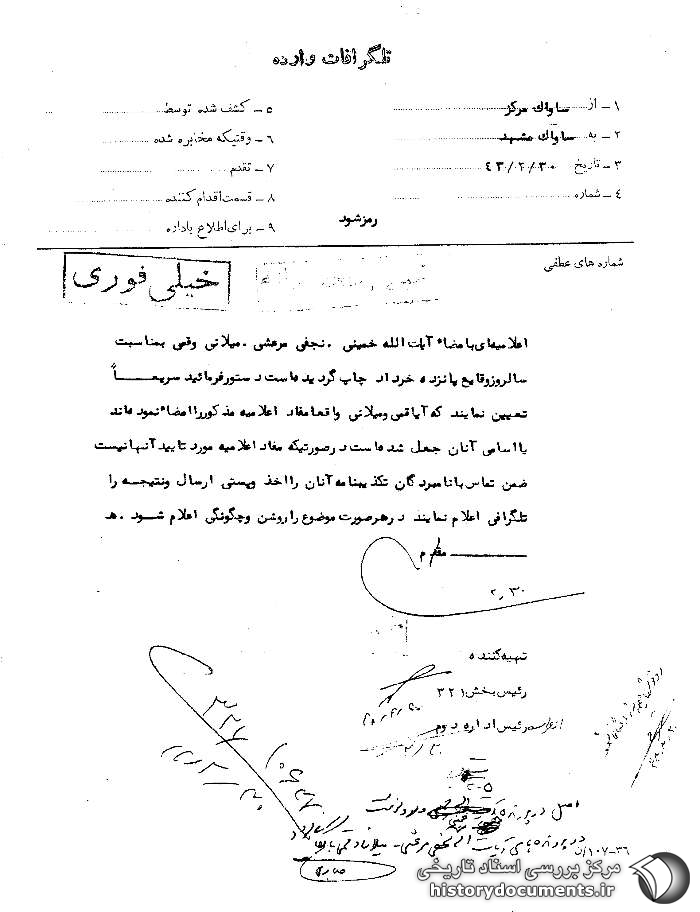 تلگرافات وارده
۱ – از ساواك مركز
۲ – به ساواك مشهد
۳ – تاریخ ۴۳/۲/۳۰
۴ – شماره
۵ – کشف شده توسط
۶ – وقتیکه مخابره شده
۷ – تقدم
۸ – قسمت اقدام کننده
۹ – برای اطلاع باداره
رمز شود
شماره های عطفی
خیلی فوری
اعلامیه‌ای بامضاء آیات الله خمینی . نجفی مرعشی . میلانی وقمی بمناسبت
سالروز وقایع پانزده خرداد چاپ گردیده است دستور فرمائید سریعاً
تعیین نمایند که آیا قمی و میلانی واقعا مفاد اعلامیه مذکور را امضاء نموده اند
یا اسامی آنان جعل شده است در صورتیکه مفاد اعلامیه مورد تایید آنها نیست
ضمن تماس با نامبردگان تکذیبنامه آنان را اخذ وپستی ارسال ونتیجه را
تلگرافی اعلام نمایند در هر صورت موضوع را روشن وچگونگی اعلام شود . هـ
مقدم
۲٫۳۰
تهیه کننده
رئیس بخش ۳۲۱
رئیس اداره دوم
۲/۳۰
اصل در پرونده
مرکز بررسی اسناد تاریخی
historydocuments.ir